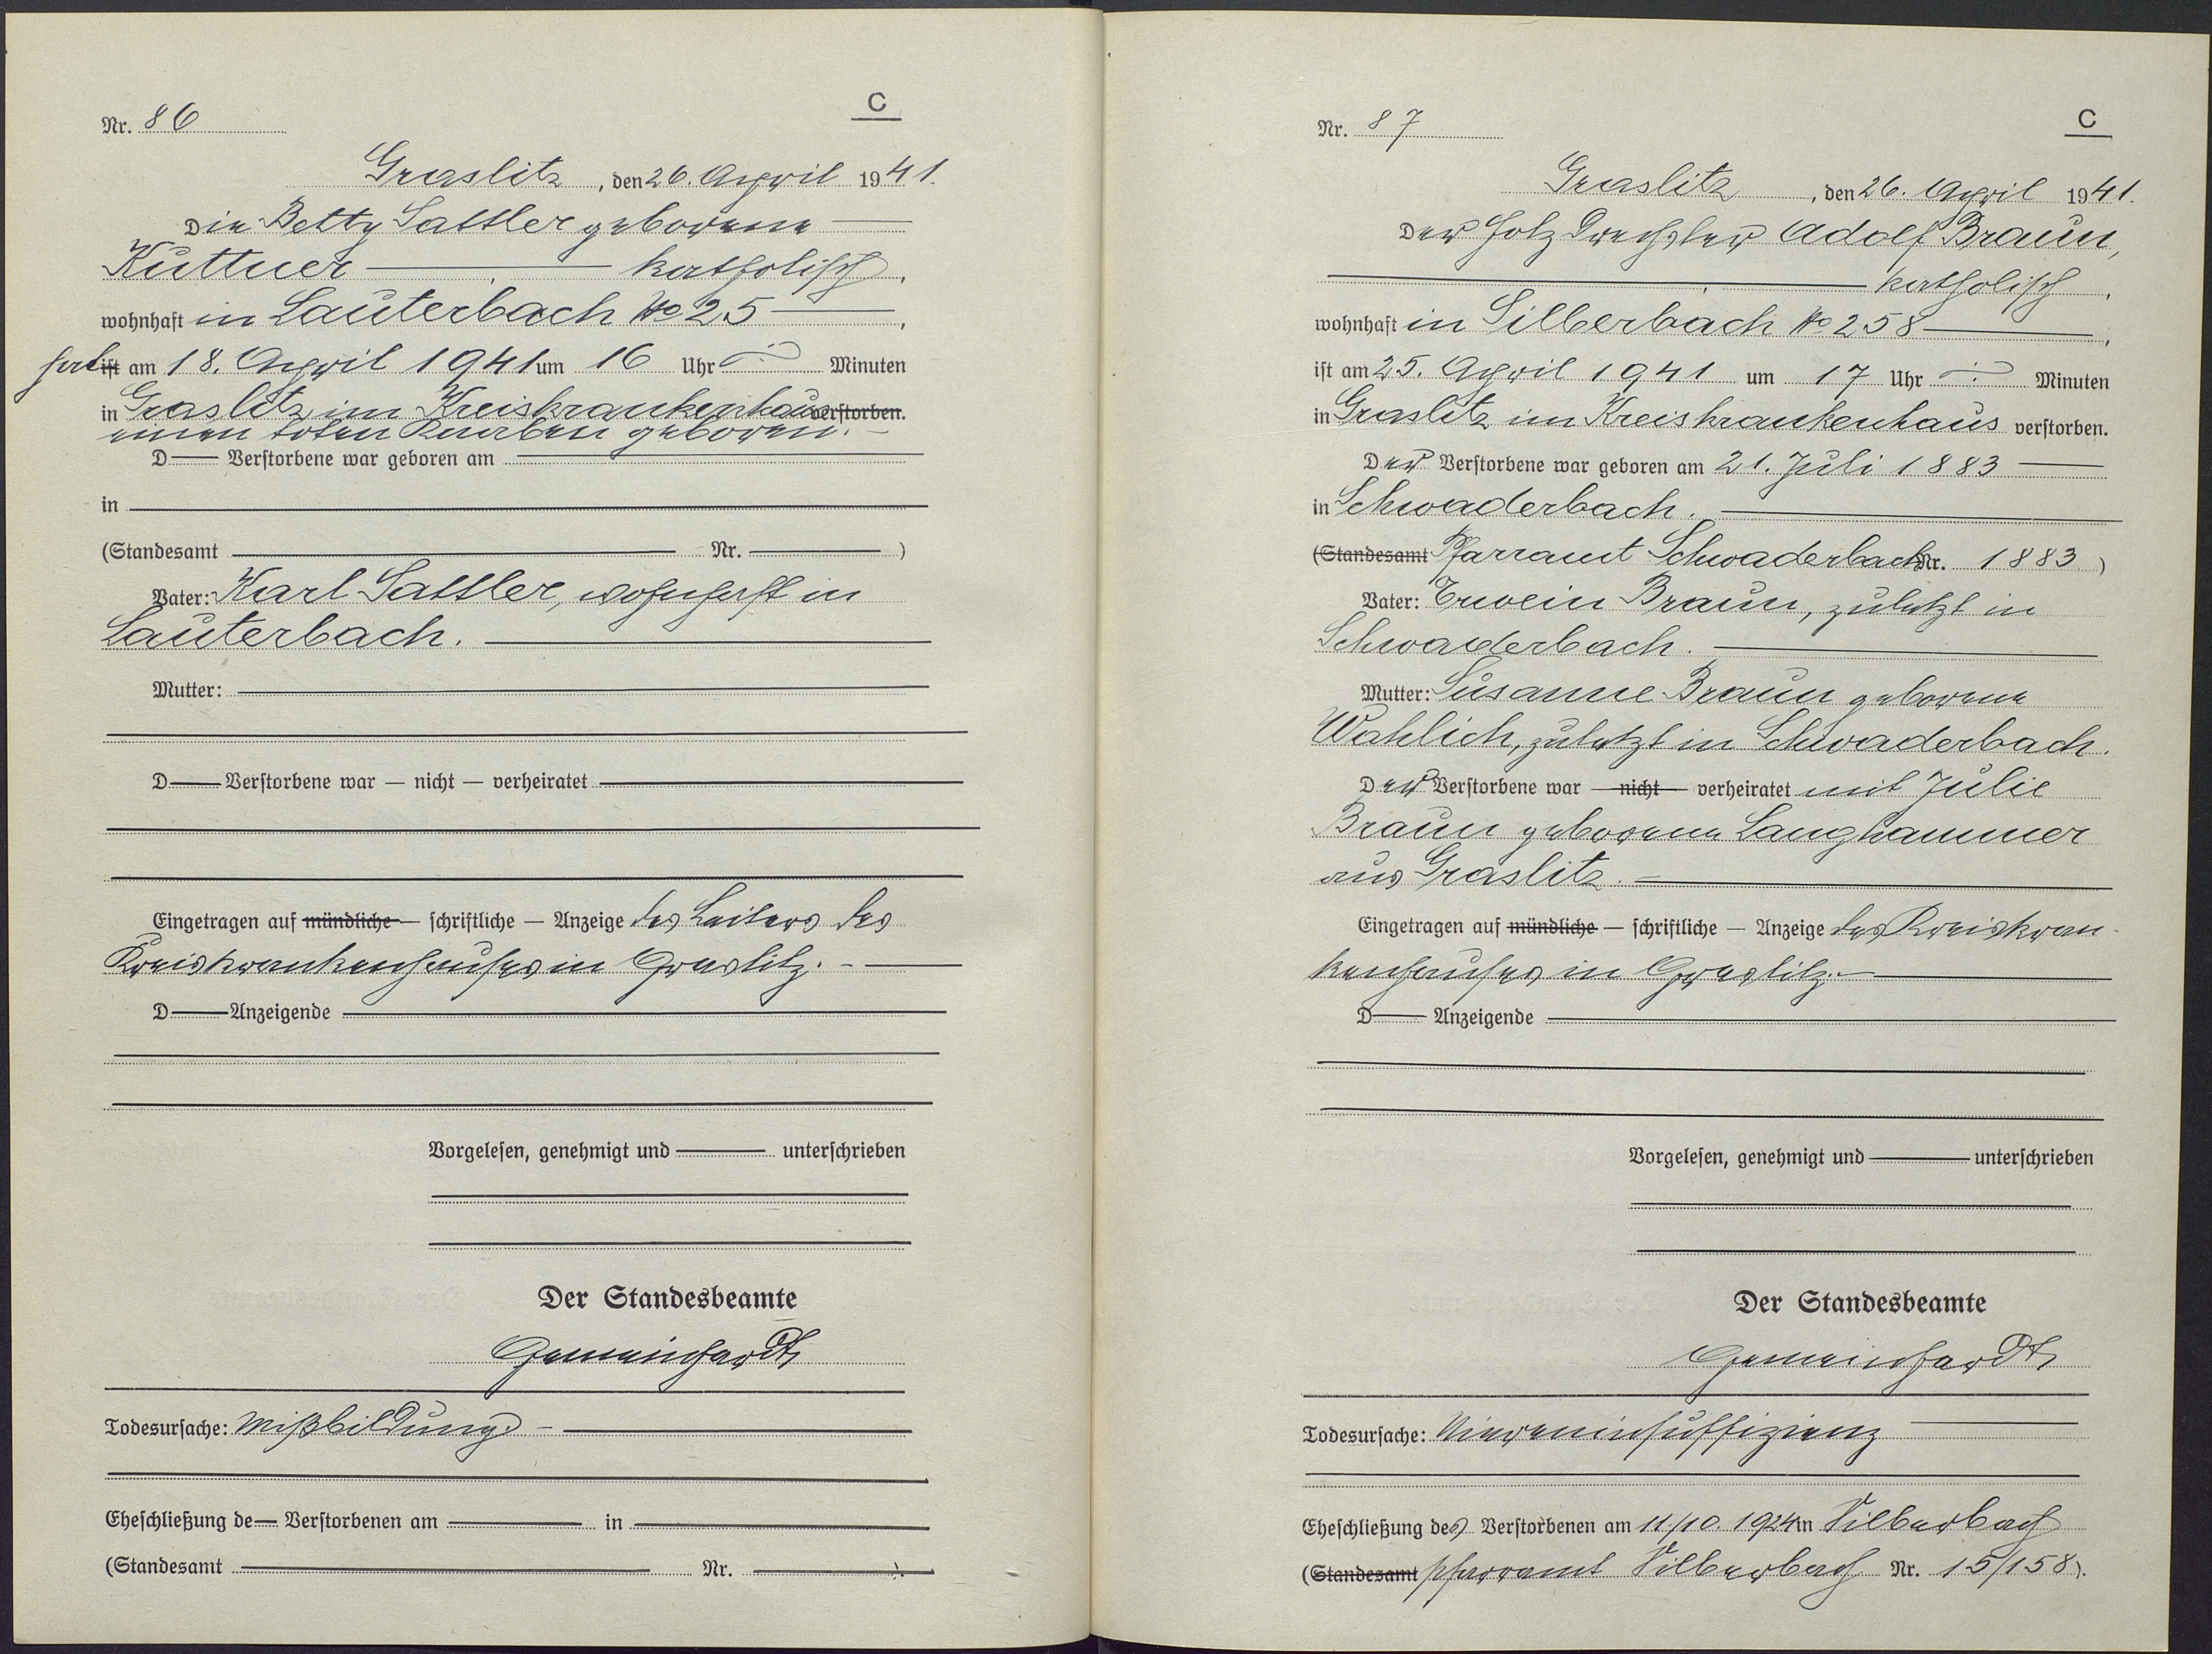 C
Nr. 86
Graslitz, den 26. April 1941.
Die Betty Sattler geborene
Kuttner katholisch,
wohnhaft in Lauterbach No 25,
hat ist am 18. April 1941 um 16 Uhr ÷ Minuten
in Graslitz im Kreiskrankenhaus verstorben.
einen toten Knaben geboren.
D Verstorbene war geboren am
in
(Standesamt Nr. )
Vater: Karl Sattler, wohnhaft in
Lauterbach.
Mutter:
D Verstorbene war — nicht — verheiratet
Eingetragen auf mündliche — schriftliche — Anzeige des Leiters des
Kreiskrankenhauses in Graslitz.
D Anzeigende
Vorgelesen, genehmigt und unterschrieben
Der Standesbeamte
Gemeinhardt
Todesursache: Mißbildung
Eheschließung de Verstorbenen am in
(Standesamt Nr. ).
C
Nr. 87
Graslitz, den 26. April 1941.
Der Holzdrechsler Adolf Braun,
katholisch,
wohnhaft in Silberbach No 258,
ist am 25. April 1941 um 17 Uhr ÷ Minuten
in Graslitz im Kreiskrankenhaus verstorben.
Der Verstorbene war geboren am 21. Juli 1883
in Schwaderbach.
(Standesamt Pfarramt Schwaderbach Nr. 1883)
Vater: Erwein Braun, zuletzt in
Schwaderbach.
Mutter: Susanne Braun geborene
Wahlich, zuletzt in Schwaderbach.
Der Verstorbene war — nicht — verheiratet mit Julie
Braun geborene Langhammer
aus Graslitz.
Eingetragen auf mündliche — schriftliche — Anzeige des Kreiskran-
kenhauses in Graslitz.
D Anzeigende
Vorgelesen, genehmigt und unterschrieben
Der Standesbeamte
Gemeinhardt
Todesursache: Niereninsuffizienz
Eheschließung des Verstorbenen am 11./10. 1924 in Silberbach
(Standesamt Pfarramt Silberbach Nr. 15/158).